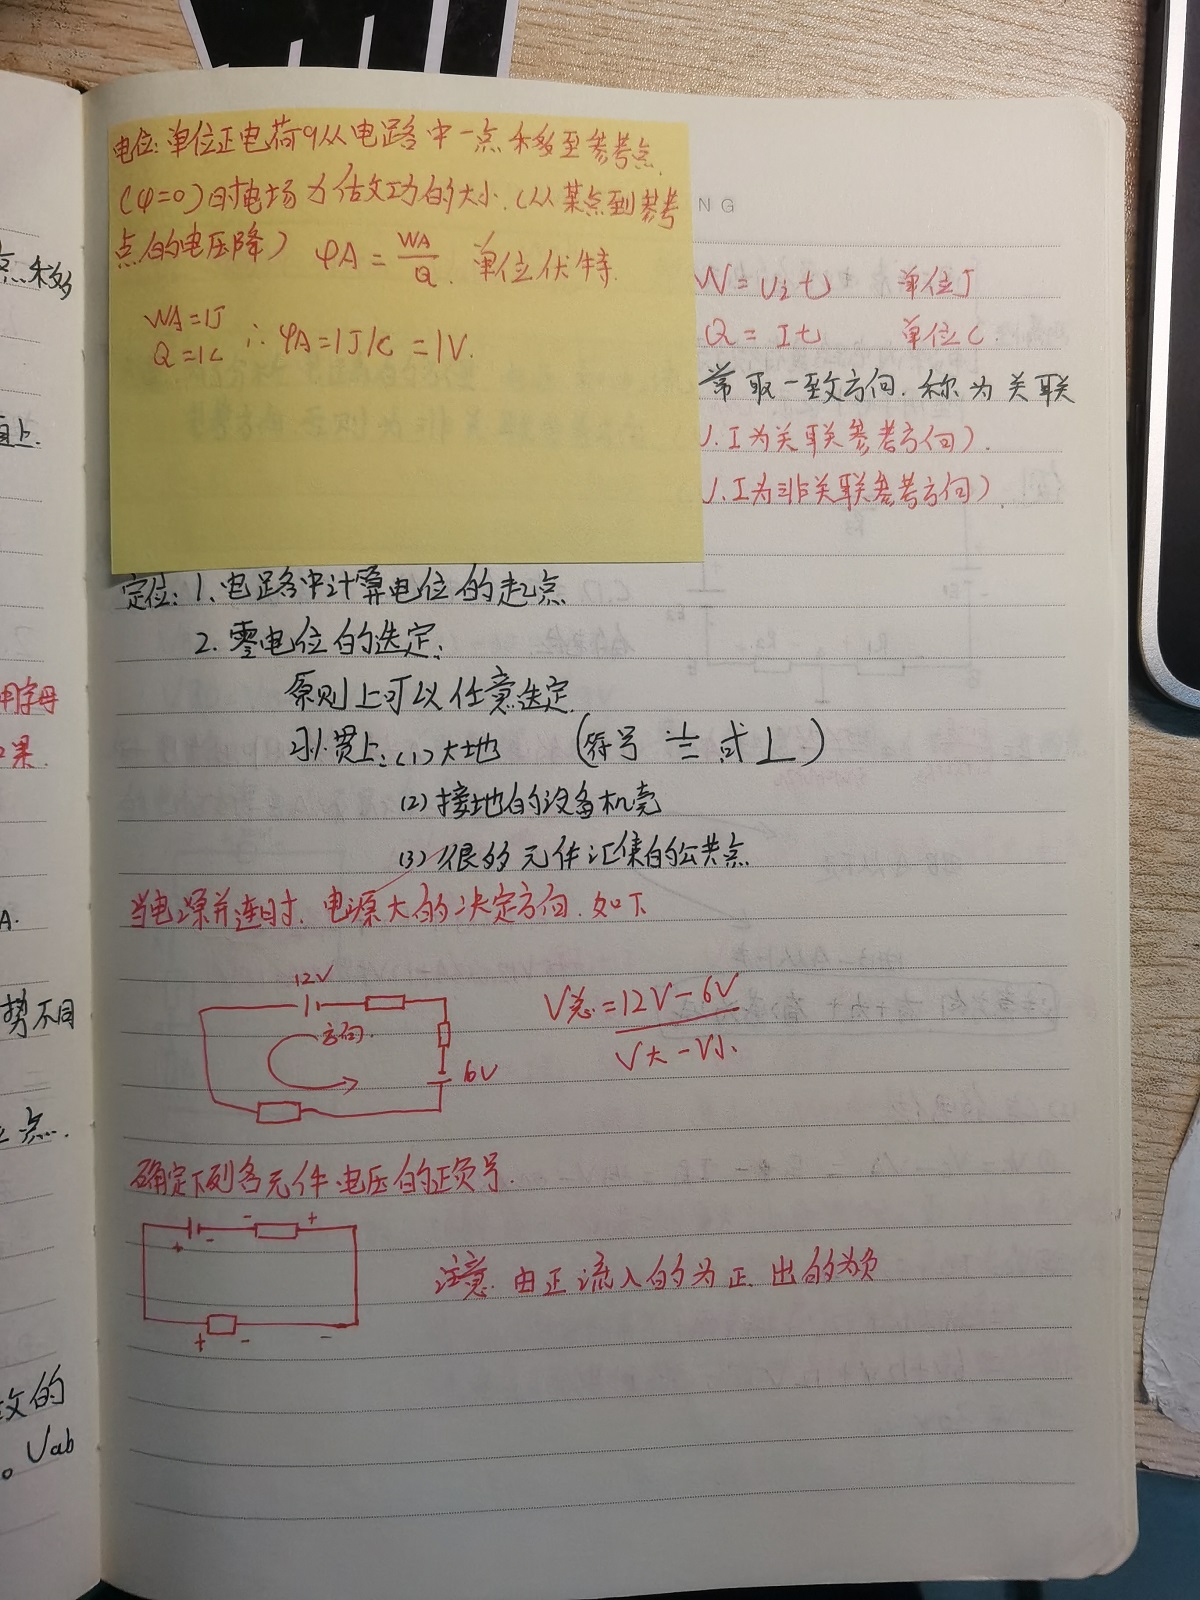 电位:单位正电荷q从电路中一点移至参考点
(φ=0)时电场力估文功的大小.(从某点到参考
点的电压降) φA = WA/Q. 单位伏特.
WA=1J
Q=1C ∴ φA=1J/C=1V.
NG
W=uit 单位J
Q=It 单位C.
常取一致方向.称为关联
U.I为关联参考方向).
U.I为非关联参考方向)
定位:1.电路中计算电位的起点
2.零电位的选定:
原则上可以任意选定
习惯上:(1)大地 (符号 ⏚ 或⊥)
(2)接地的设备机壳
(3)很多元件汇集的公共点
当电源并连时.电源大的决定方向.如下
12V
方向.
6V
V总=12V-6V
V大-V小.
确定下列各元件电压的正负号.
+ - - +
+ - -
注意.由正流入的为正.出的为负
点移
直上.
用字母
果.
A.
势不同
点.
文的
。Uab